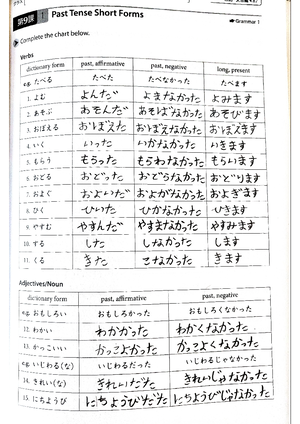 第9課 1 Past Tense Short Forms
Grammar 1
Complete the chart below.
Verbs
dictionary form past, affirmative past, negative long, present
e.g. たべる たべた たべなかった たべます
1. よむ よんだ よまなかった よみます
2. あそぶ あそんだ あそばなかった あそびます
3. おぼえる おぼえた おぼえなかった おぼえます
4. いく いった いかなかった いきます
5. もらう もらった もらわなかった もらいます
6. おどる おどった おどらなかった おどります
7. およぐ およいだ およがなかった およぎます
8. ひく ひいた ひかなかった ひきます
9. やすむ やすんだ やすまなかった やすみます
10. する した しなかった します
11. くる きた こなかった きます
Adjectives/Noun
dictionary form past, affirmative past, negative
e.g. おもしろい おもしろかった おもしろくなかった
12. わかい わかかった わかくなかった
13. かっこいい かっこよかった かっこよくなかった
e.g. いじわる(な) いじわるだった いじわるじゃなかった
14. きれい(な) きれいだった きれいじゃなかった
15. にちようび にちようびだった にちようびじゃなかった